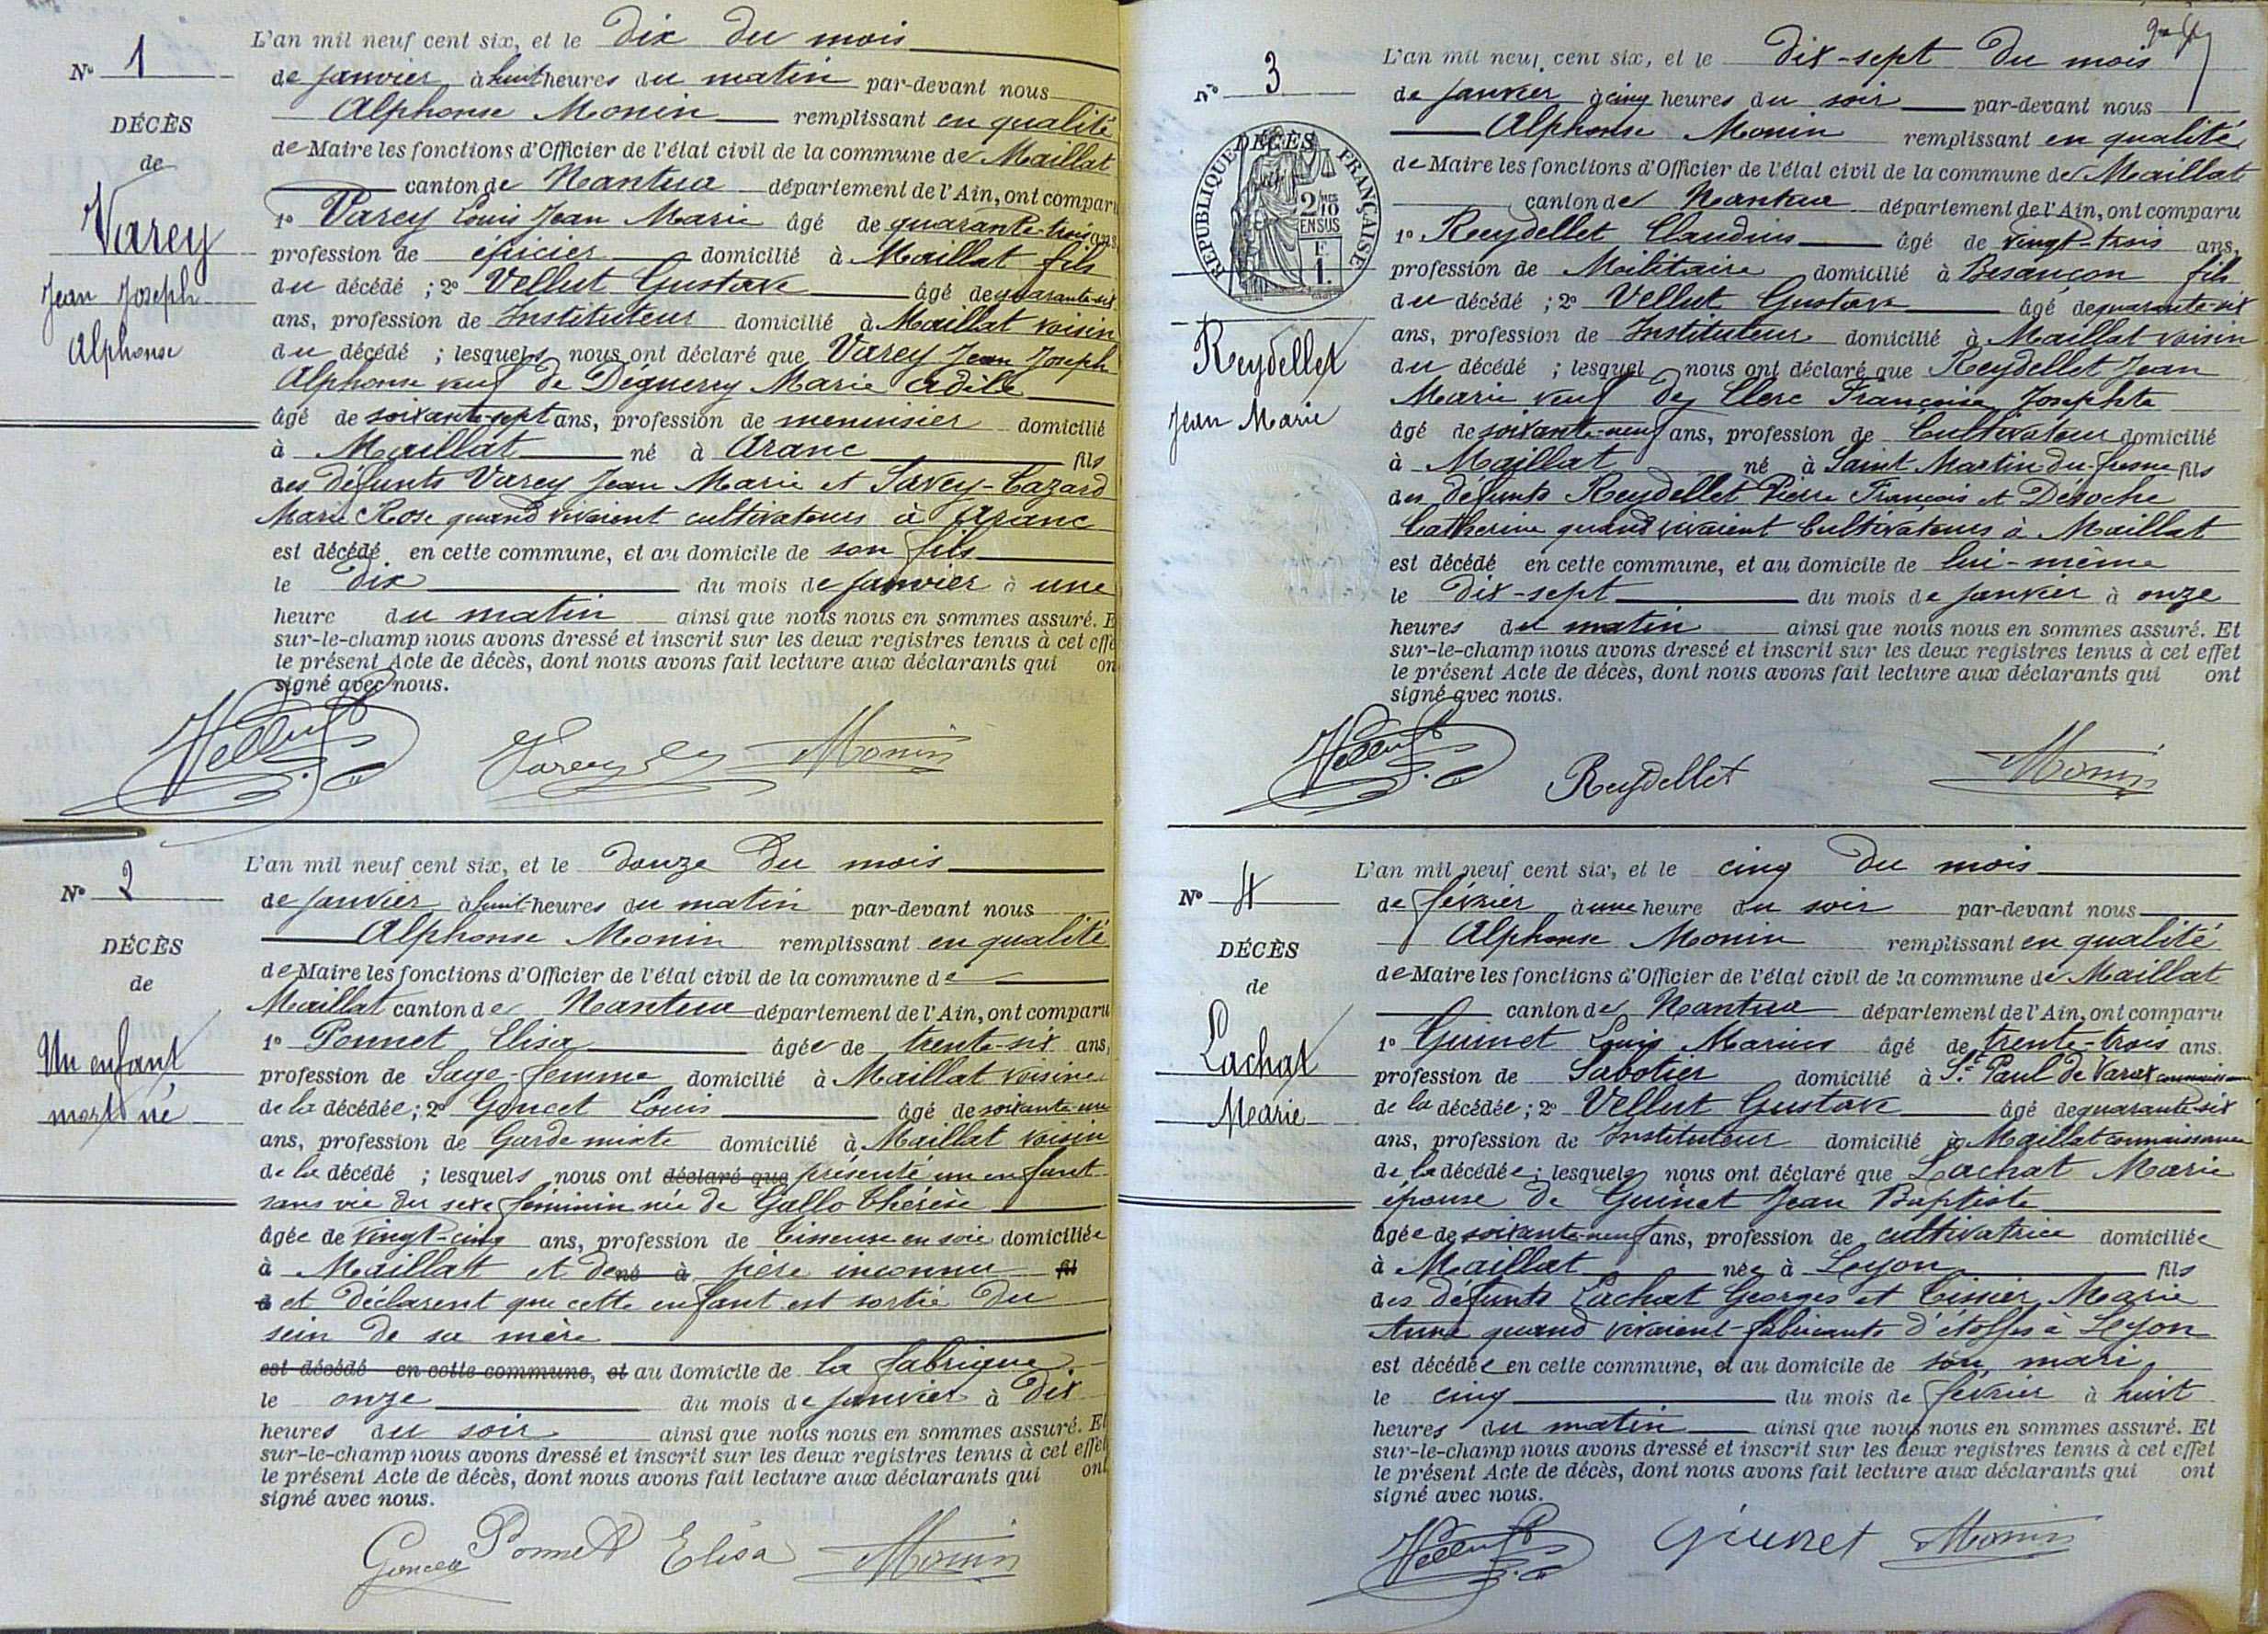 N° 1
DÉCÈS
de
Varey
Jean Joseph
Alphonse
L'an mil neuf cent six, et le dix du mois
de janvier à huit heures du matin par-devant nous
Alphonse Monin remplissant en qualité
de Maire les fonctions d'Officier de l'état civil de la commune de Maillat
canton de Nantua département de l'Ain, ont comparu
1° Varey Louis Jean Marie âgé de quarante-trois ans,
profession de épicier domicilié à Maillat fils
du décédé ; 2° Vellut Gustave âgé de quarante-six
ans, profession de Instituteur domicilié à Maillat voisin
du décédé ; lesquels nous ont déclaré que Varey Jean Joseph
Alphonse veuf de Déguerry Marie Adèle
âgé de soixante-sept ans, profession de menuisier domicilié
à Maillat né à Aranc fils
des défunts Varey Jean Marie et Savey-Cazard
Marie Rose quand vivaient cultivateurs à Aranc
est décédé en cette commune, et au domicile de son fils
le dix du mois de janvier à une
heure du matin ainsi que nous nous en sommes assuré. E
sur-le-champ nous avons dressé et inscrit sur les deux registres tenus à cet effe
le présent Acte de décès, dont nous avons fait lecture aux déclarants qui on
signé avec nous.
Vellut Varey Monin
N° 2
DÉCÈS
de
Un enfant
mort né
L'an mil neuf cent six, et le douze du mois
de janvier à huit heures du matin par-devant nous
Alphonse Monin remplissant en qualité
de Maire les fonctions d'Officier de l'état civil de la commune de
Maillat canton de Nantua département de l'Ain, ont comparu
1° Ponnet Elisa âgée de trente-six ans,
profession de Sage-femme domicilié à Maillat voisine
de la décédée ; 2° Goncet Louis âgé de soixante-un
ans, profession de Garde mixte domicilié à Maillat voisin
de la décédé ; lesquels nous ont déclaré que présenté un enfant
sans vie du sexe féminin née de Gallo Thérèse
âgée de vingt-cinq ans, profession de Tisseuse en soie domiciliée
à Maillat et de né à père inconnu fil
d et déclarent que cette enfant est sortie du
sein de sa mère
est décédé en cette commune, et au domicile de la fabrique
le onze du mois de janvier à dix
heures du soir ainsi que nous nous en sommes assuré. Et
sur-le-champ nous avons dressé et inscrit sur les deux registres tenus à cet effet
le présent Acte de décès, dont nous avons fait lecture aux déclarants qui ont
signé avec nous.
Ponnet Elisa Monin
N° 3
DÉCÈS
RÉPUBLIQUE FRANÇAISE
2/10
EN SUS
1
Reydellet
Jean Marie
L'an mil neuf cent six, et le dix-sept du mois
de janvier à cinq heures du soir par-devant nous
Alphonse Monin remplissant en qualité
de Maire les fonctions d'Officier de l'état civil de la commune de Maillat
canton de Nantua département de l'Ain, ont comparu
1° Reydellet Claudius âgé de vingt-trois ans,
profession de Militaire domicilié à Besançon fils
du décédé ; 2° Vellut Gustave âgé de quarante-six
ans, profession de Instituteur domicilié à Maillat voisin
du décédé ; lesquel nous ont déclaré que Reydellet Jean
Marie veuf de Clerc Françoise Josephte
âgé de soixante-neuf ans, profession de Cultivateur domicilié
à Maillat né à Saint Martin-du-fresne fils
des défunts Reydellet Pierre François et Déroche
Catherine quand vivaient Cultivateurs à Maillat
est décédé en cette commune, et au domicile de lui-même
le dix-sept du mois de janvier à onze
heures du matin ainsi que nous nous en sommes assuré. Et
sur-le-champ nous avons dressé et inscrit sur les deux registres tenus à cet effet
le présent Acte de décès, dont nous avons fait lecture aux déclarants qui ont
signé avec nous.
Vellut Reydellet Monin
N° 4
DÉCÈS
de
Lachat
Marie
L'an mil neuf cent six, et le cinq du mois
de février à une heure du soir par-devant nous
Alphonse Monin remplissant en qualité
de Maire les fonctions d'Officier de l'état civil de la commune de Maillat
canton de Nantua département de l'Ain, ont comparu
1° Guinet Louis Marius âgé de trente-trois ans.
profession de Sabotier domicilié à St Paul de Varax connaissance
de la décédée ; 2° Vellut Gustave âgé de quarante-six
ans, profession de Instituteur domicilié à Maillat connaissance
de la décédée ; lesquels nous ont déclaré que Lachat Marie
épouse de Guinet Jean Baptiste
âgée de soixante-neuf ans, profession de cultivatrice domiciliée
à Maillat née à Lyon fils
des défunts Lachat Georges et Tissier Marie
Anne quand vivaient fabricants d'étoffes à Lyon
est décédée en cette commune, et au domicile de son mari
le cinq du mois de février à huit
heures du matin ainsi que nous nous en sommes assuré. Et
sur-le-champ nous avons dressé et inscrit sur les deux registres tenus à cet effet
le présent Acte de décès, dont nous avons fait lecture aux déclarants qui ont
signé avec nous.
Vellut Guinet Monin